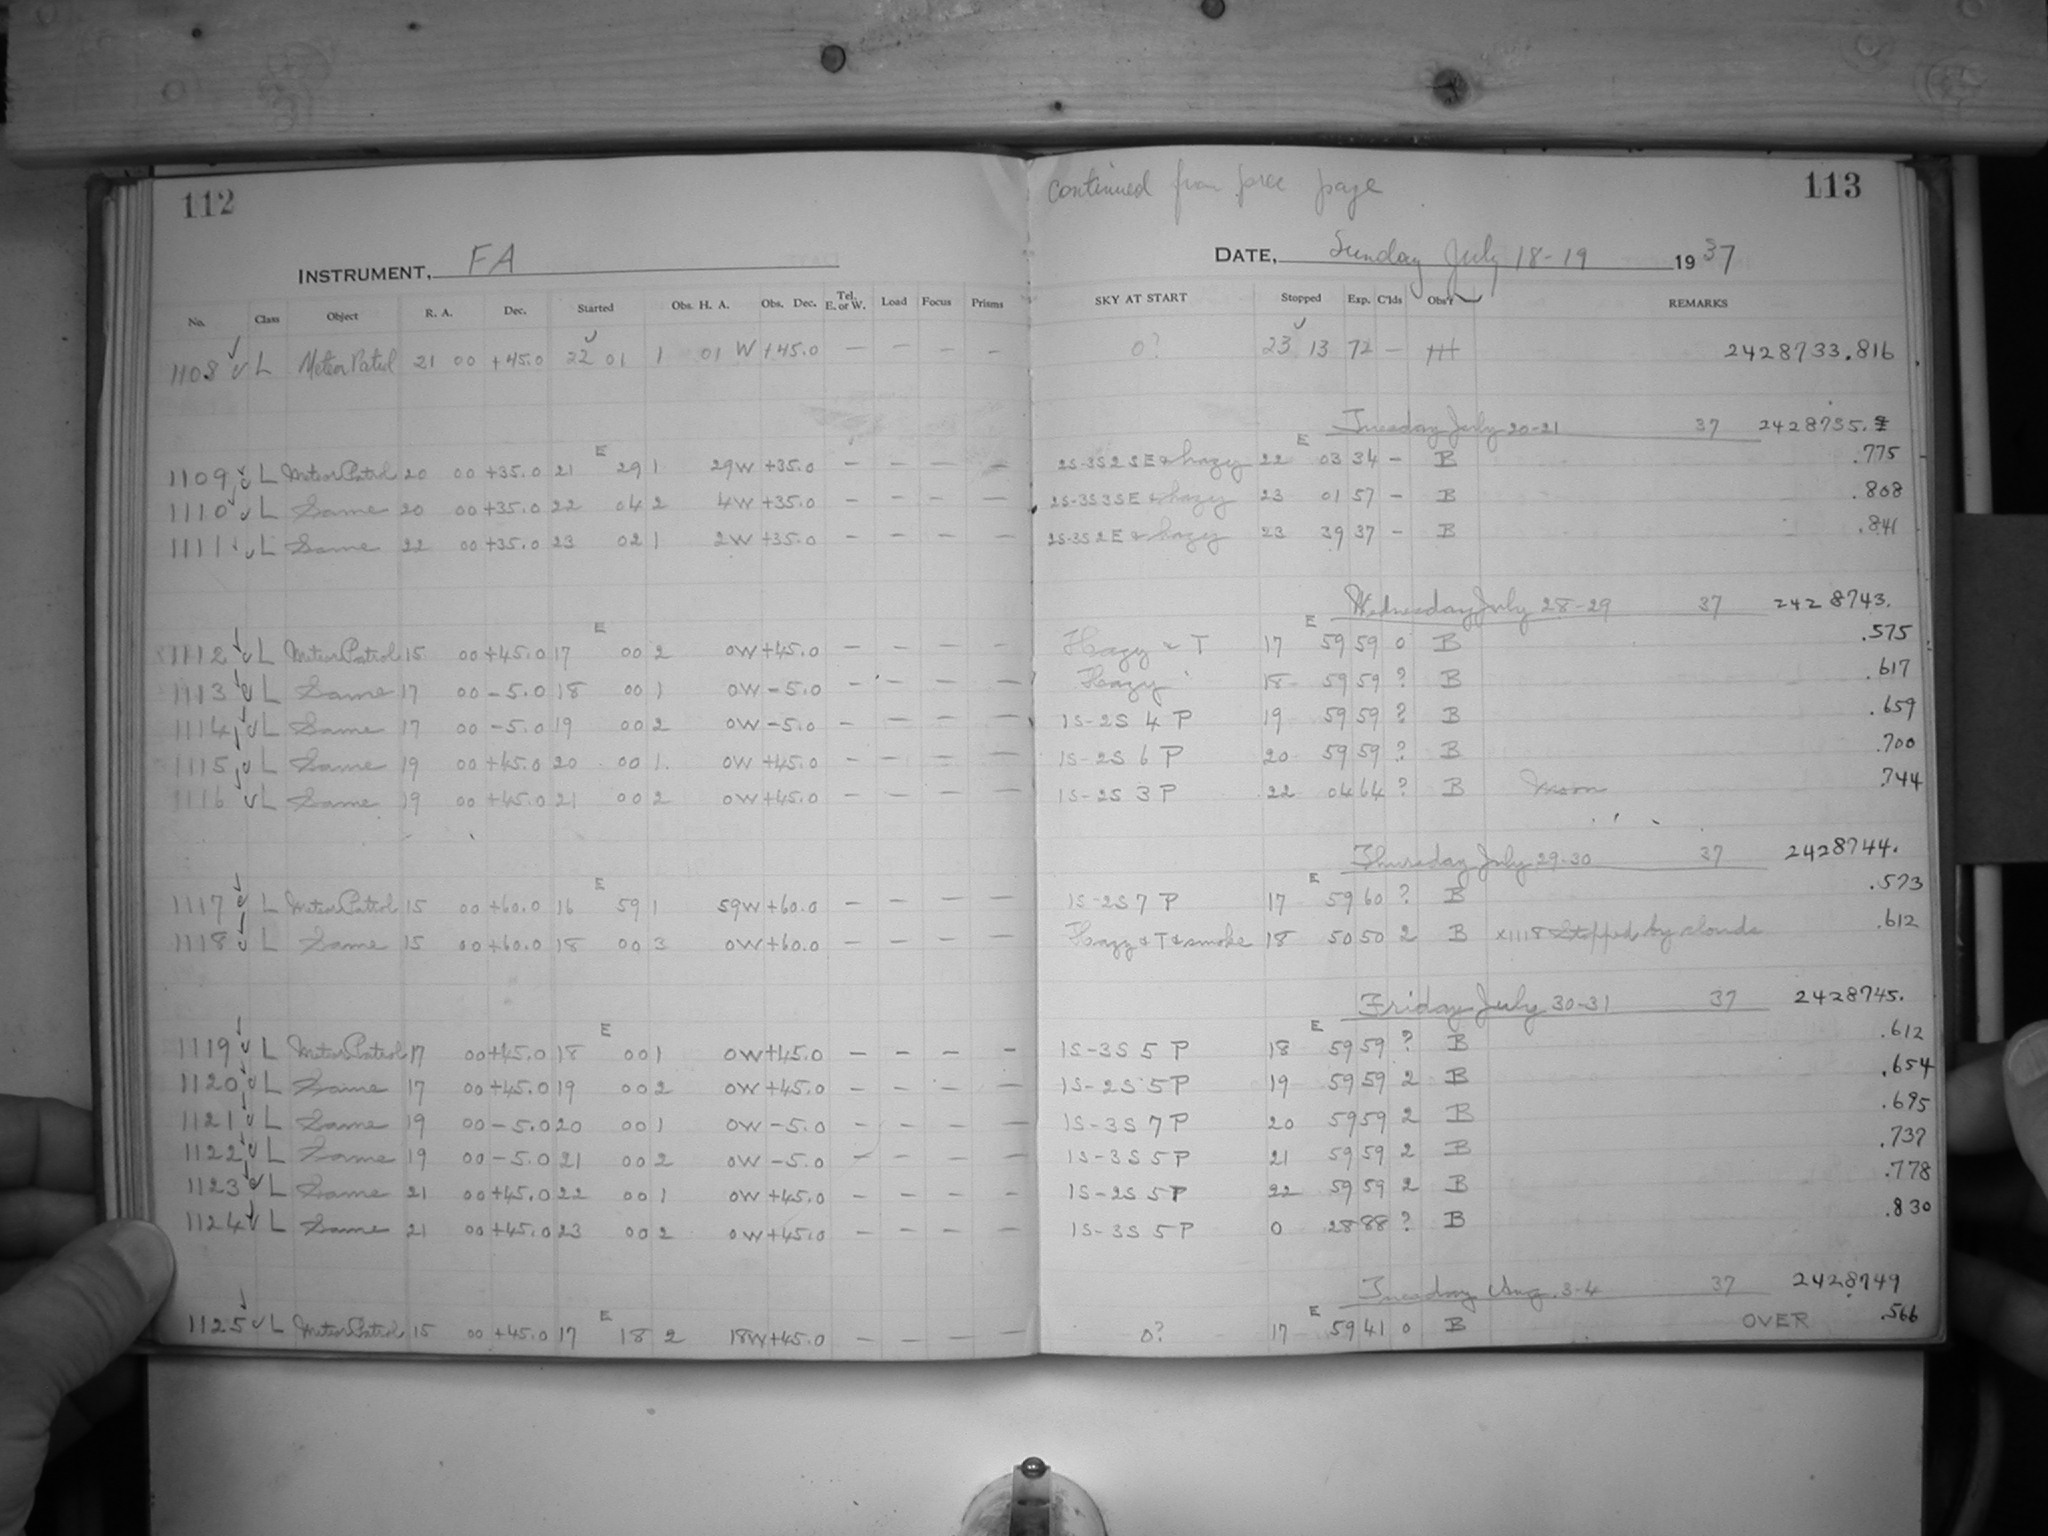 112
continued from prec page
113
INSTRUMENT, FA
DATE, Sunday July 18-19 1937
No. Class Object R. A. Dec. Started Obs. H. A. Obs. Dec. Tel. E. or W. Load Focus Prisms SKY AT START Stopped Exp. C'lds Obs'r REMARKS
1108 L Meteor Patrol 21 00 +45.0 22 01 1 01 W +45.0 — — — — 0? 23 13 72 — 2428733.816
Tuesday July 20-21 37 2428735.
1109 L Meteor Patrol 20 00 +35.0 21 E 29 1 29W +35.0 — — — — 2S-3S 2 SE & hazy 22 E 03 34 — B .775
1110 L Same 20 00 +35.0 22 04 2 4W +35.0 — — — — 2S-3S 3 SE & hazy 23 01 57 — B .808
1111 L Same 22 00 +35.0 23 02 1 2W +35.0 — — — — 2S-3S 2 E & hazy 23 39 37 — B .841
Wednesday July 28-29 37 2428743.
1112 L Meteor Patrol 15 00 +45.0 17 E 00 2 0W +45.0 — — — — Hazy & T 17 E 59 59 0 B .575
1113 L Same 17 00 -5.0 18 00 1 0W -5.0 — — — — Hazy 18 59 59 ? B .617
1114 L Same 17 00 -5.0 19 00 2 0W -5.0 — — — — 1S-2S 4 P 19 59 59 ? B .659
1115 L Same 19 00 +45.0 20 00 1 0W +45.0 — — — — 1S-2S 6 P 20 59 59 ? B .700
1116 L Same 19 00 +45.0 21 00 2 0W +45.0 — — — — 1S-2S 3 P 22 04 64 ? B Moon .744
Thursday July 29-30 37 2428744.
1117 L Meteor Patrol 15 00 +60.0 16 E 59 1 59W +60.0 — — — — 1S-2S 7 P 17 E 59 60 ? B .573
1118 L Same 15 00 +60.0 18 00 3 0W +60.0 — — — — Hazy & T & smoke 18 50 50 2 B x1118 Stopped by clouds .612
Friday July 30-31 37 2428745.
1119 L Meteor Patrol 17 00 +45.0 18 E 00 1 0W +45.0 — — — — 1S-3S 5 P 18 E 59 59 ? B .612
1120 L Same 17 00 +45.0 19 00 2 0W +45.0 — — — — 1S-2S 5 P 19 59 59 2 B .654
1121 L Same 19 00 -5.0 20 00 1 0W -5.0 — — — — 1S-3S 7 P 20 59 59 2 B .695
1122 L Same 19 00 -5.0 21 00 2 0W -5.0 — — — — 1S-3S 5 P 21 59 59 2 B .737
1123 L Same 21 00 +45.0 22 00 1 0W +45.0 — — — — 1S-2S 5 P 22 59 59 2 B .778
1124 L Same 21 00 +45.0 23 00 2 0W +45.0 — — — — 1S-3S 5 P 0 28 88 ? B .830
Tuesday Aug. 3-4 37 2428749
1125 L Meteor Patrol 15 00 +45.0 17 E 18 2 18W +45.0 — — — — 0? 17 E 59 41 0 B OVER .566